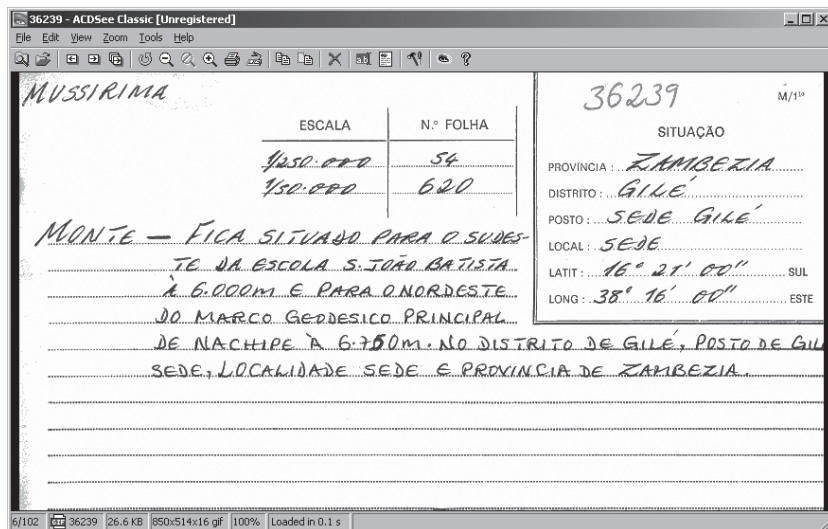 36239 - ACDSee Classic [Unregistered]
File Edit View Zoom Tools Help
MUSSIRIMA
36239
M/1¹º
ESCALA
N.º FOLHA
1/250.000
54
1/50.000
620
SITUAÇÃO
PROVÍNCIA: ZAMBEZIA
DISTRITO: GILÉ
POSTO: SEDE GILÉ
LOCAL: SEDE
LATIT: 16° 21' 00" SUL
LONG: 38° 16' 00" ESTE
MONTE — FICA SITUADO PARA O SUDES-
TE DA ESCOLA S. JOÃO BATISTA
À 6.000m E PARA O NORDESTE
DO MARCO GEODESICO PRINCIPAL
DE NACHIPE À 6.750m. NO DISTRITO DE GILÉ, POSTO DE GIL
SEDE, LOCALIDADE SEDE E PROVINCIA DE ZAMBEZIA.
6/102 36239 26.6 KB 850x514x16 gif 100% Loaded in 0.1 s